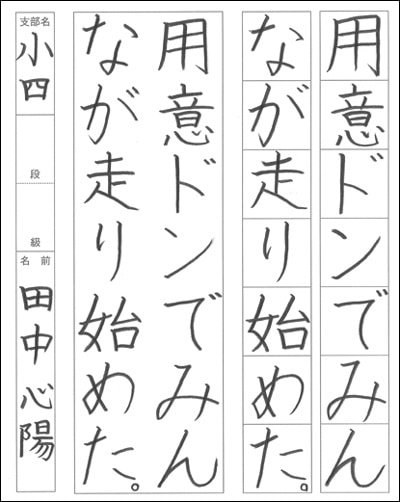 用意ドンでみん
ながが走り始めた。
用意ドンでみん
なが走り始めた。
支部名
小四
段
級
名前
田中心陽